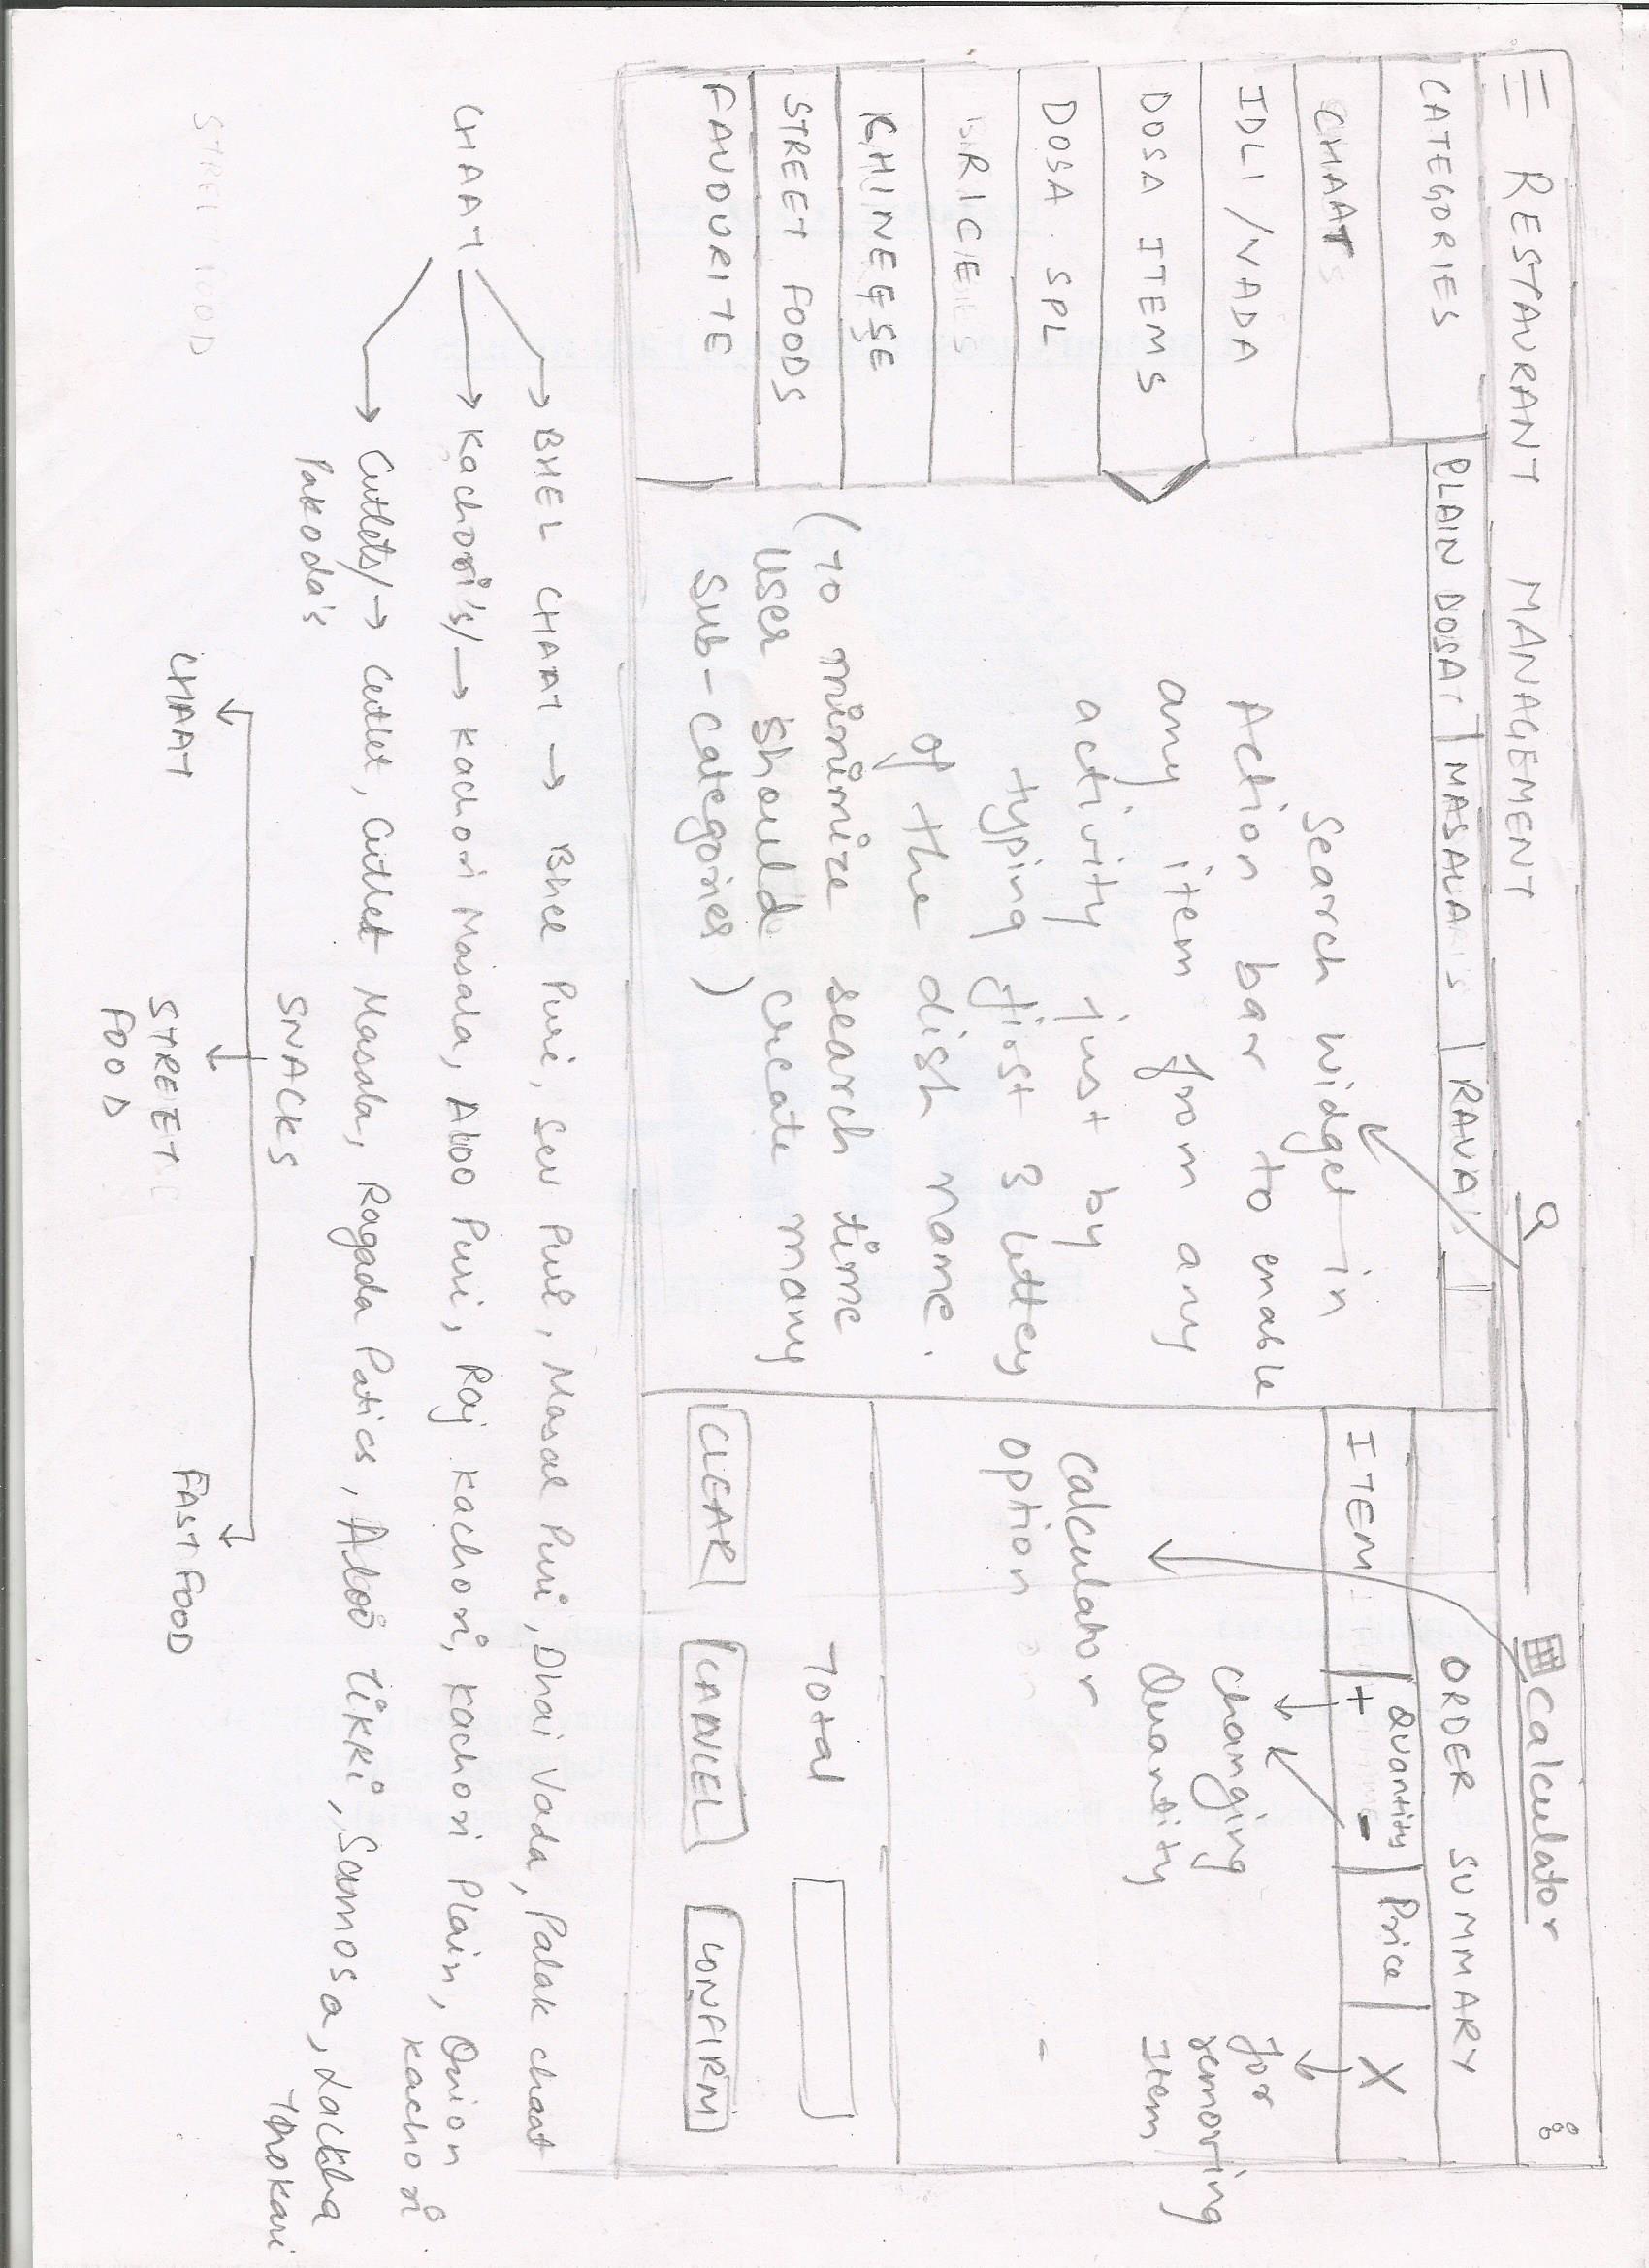 RESTAURANT MANAGEMENT Calculator
CATEGORIES
CHAAT
IDLI / VADA
DOSA ITEMS
DOSA SPL
RICE
CHINEESE
STREET FOODS
FAVOURITE
PLAIN DOSA MASALA RAVA
Search widget in
Action bar to enable
any item from any
activity just by
typing first 3 letters
of the dish name.
(To minimize search time
user should create many
sub-categories)
ORDER SUMMARY
ITEM Quantity Price X
+ -
Changing
Quantity
for
removing
Item
Calculator
option
Total
CLEAR CANCEL CONFIRM
CHAAT → BHEL CHAAT → Bhel Puri, Sev Puri, Masal Puri, Dhai Vada, Palak chaat
→ Kachori's/ → Kachori Masala, Aloo Puri, Raj Kachori, Kachori Plain, Onion
Kachori
→ Cutlets/ → Cutlet, Cutlet Masala, Ragada Patics, Aloo Tikki, Samosa, Lackha
Pakoda's
Thokari
SNACKS
CHAAT STREET FAST FOOD
FOOD
STREET FOOD